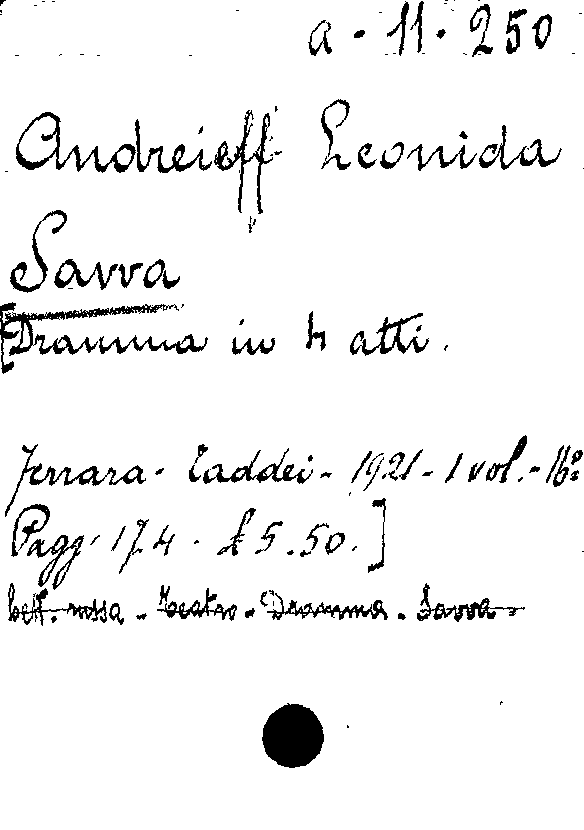 a - 11 - 250
Andreieff Leonida
Savva
[Dramma in 4 atti.
Ferrara - Taddei - 1921 - 1 vol. - 16º
Pagg. 174 - £ 5.50.]
Lett. russa - Teatro - Dramma - Savva